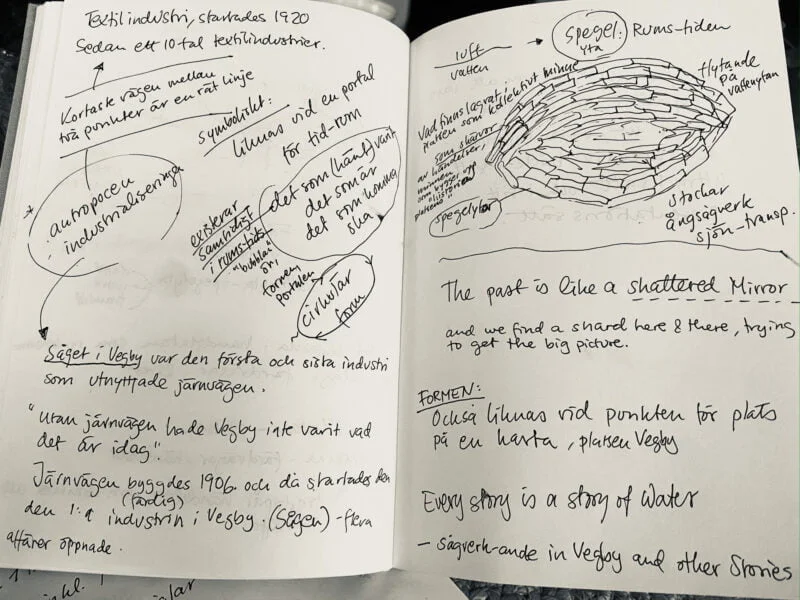 Textilindustri, startades 1920
Sedan ett 10 tal textilindustrier.
Kortaste vägen mellan
två punkter är en rät linje
symboliskt:
liknas vid en portal
för tid-rum
antropocen
industrialiseringa
existerar
samtidigt
i rums-tids
"bubblan"
formen,
Portalen
det som (hänt) varit
det som är
det som komma
ska
cirkular
form
Såget i Vegby var den första och sista industri
som utnyttjade järnvägen.
"Utan järnvägen hade Vegby inte varit vad
det är idag".
Järnvägen byggdes 1906. och då startades den
(färdig)
den 1:a industrin i Vegby. (Sågen) - flera
affärer öppnade.
luft
vatten
Spegel:
yta
Rums-tiden
flytande
på
vattenytan
Vad finns lagrat i
platsen som kollektivt minne
som skärvor
av händelser,
minnen
som bygger upp
platsens "historia"
spegelytor
stockar
ångsågverk
sjön-transp.
The past is like a shattered Mirror
and we find a shard here & there, trying
to get the big picture.
FORMEN:
Också liknas vid punkten för plats
på en karta, platsen Vegby
Every story is a story of Water
- sågverk-ande in Vegby and other Stories